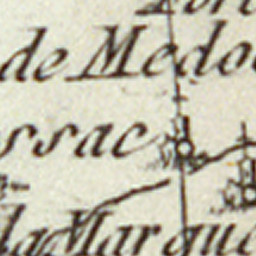 de Medo
ssac
la Marque